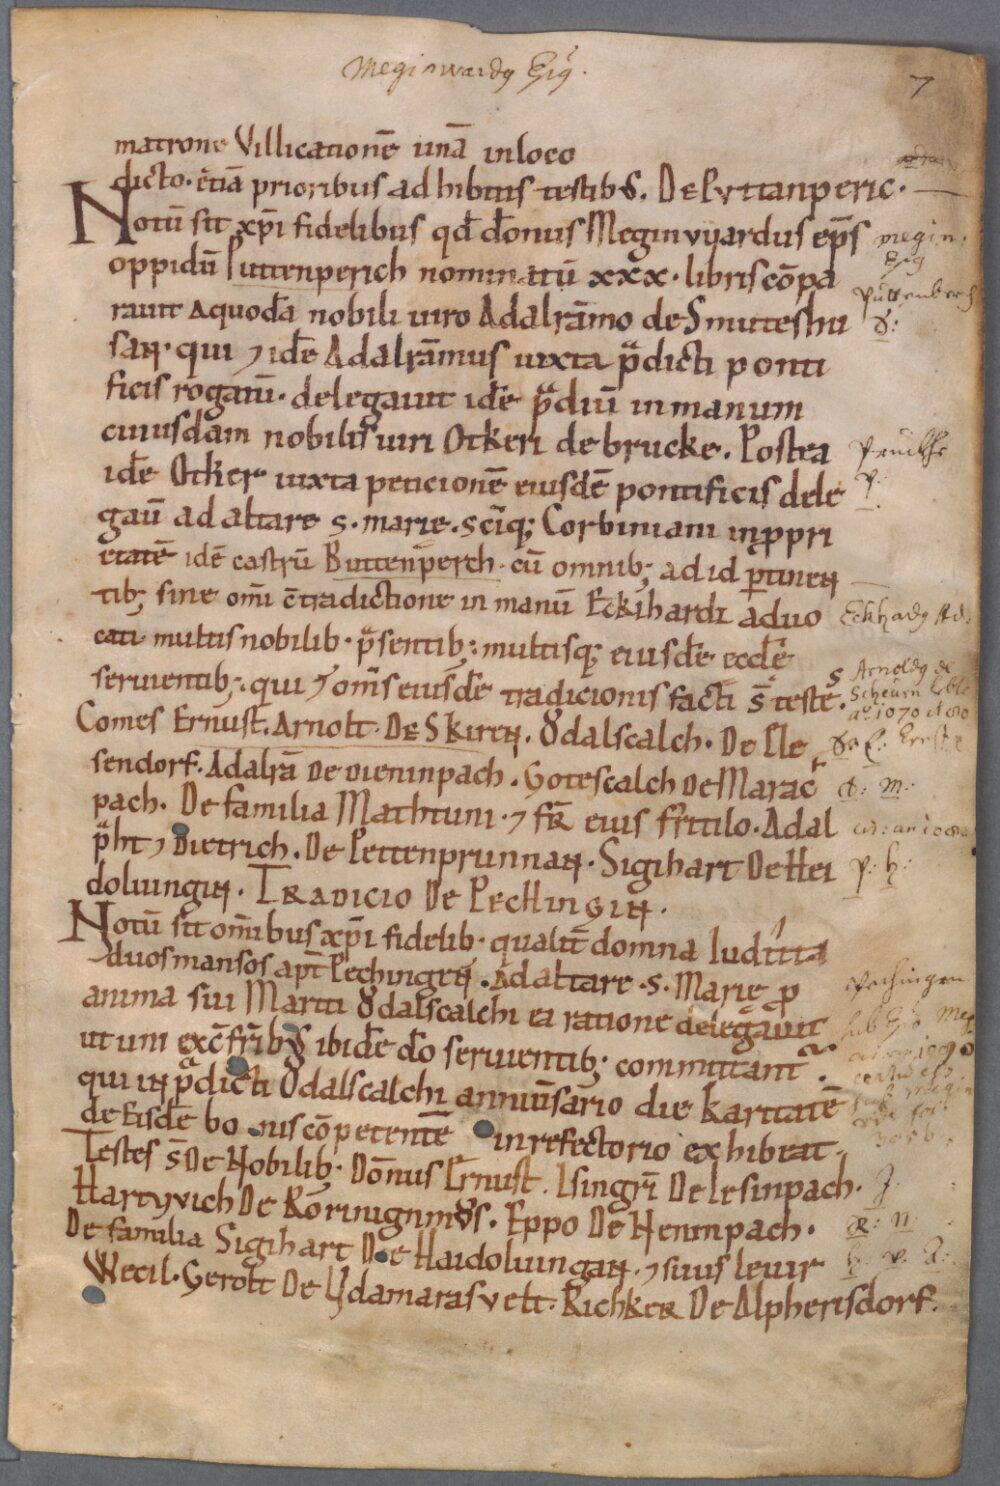 Meginwardꝯ Ep̄ꝯ.
7
matrone Villicationē unā in loco
dicto. etiā prioribus adhibitis testibꝰ. De Puttanperic.
Notū sit xp̄i fidelibus qd̄ dōnus Meginvvardus ep̄s
oppidū Puttenperich nominatū xxx. libris cōpa
rauit a quodā nobili uiro Adalrāmo de Smuteshu
san. qui ⁊ idē Adalrāmus iuxta p̄dicti ponti
ficis rogatū. delegauit idē p̄diū in manum
cuiusdam nobilis uiri Otkeri de brucke. Postea
idē Otker iuxta peticionē eiusdē pontificis dele
gaū ad altare s. marie. scīq; Corbiniani in ꝓpri
etatē idē castrū Buttenperch. cū omnib; ad id ꝑtinen
tib; sine om̄i c̄tradictione in manū Eckihardi aduo
cati multis nobilib. p̄sentib; multisq; eiusdē eccl̄ę
seruientib; qui ⁊ om̄s eiusdē tradicionis facti s̄ testes.
Comes Ernust. Arnolt. De Skiren. Ǒdalscalch. De Ele
sendorf. Adalrā De Dieninpach. Gotescalch De Marac
pach. De familia Mathtuni. ⁊ fr̄ eius frītilo. Adal
p̄ht ⁊ Dietrich. De Pettenprunnan. Sigihart De Hei
doluingin. Tradicio De Pechingin.
Notū sit om̄ibus xp̄i fidelib. qualit̄ domna Iudita
duos mansos apt̄ Pechingen. Ad altare. s. Marię ꝓ
anima sui Mariti Ǒdalscalchi ea ratione delegauit
ut uni exc̄ fr̄ibꝰ ibidē dō seruientib; committant̄.
qui in p̄dicti Ǒdalscalchi anniūsario die karitatē
de Eisdē bonis cōpetentē in refectorio exhibeat.
Testes s̄ De Nobilib. Dōnus Ernust. Isingrī De Lesinpach.
Hartvvich De Rōrinignmǒs. Eppo De Neninpach.
De familia Sigihart De Haidoluingan. ⁊ suus leuir
Wecil. Gerolt De Ydamarasvelt. Richker De Alpherisdorf.
megin.
Ep̄ꝯ
Puttenberch
Pruckhe
P.
Eckhardꝯ Ad.
Arnoldꝯ de
Scheurn
aº. 1070
d: m:
P. h:
Pechingen
J.
R: n: